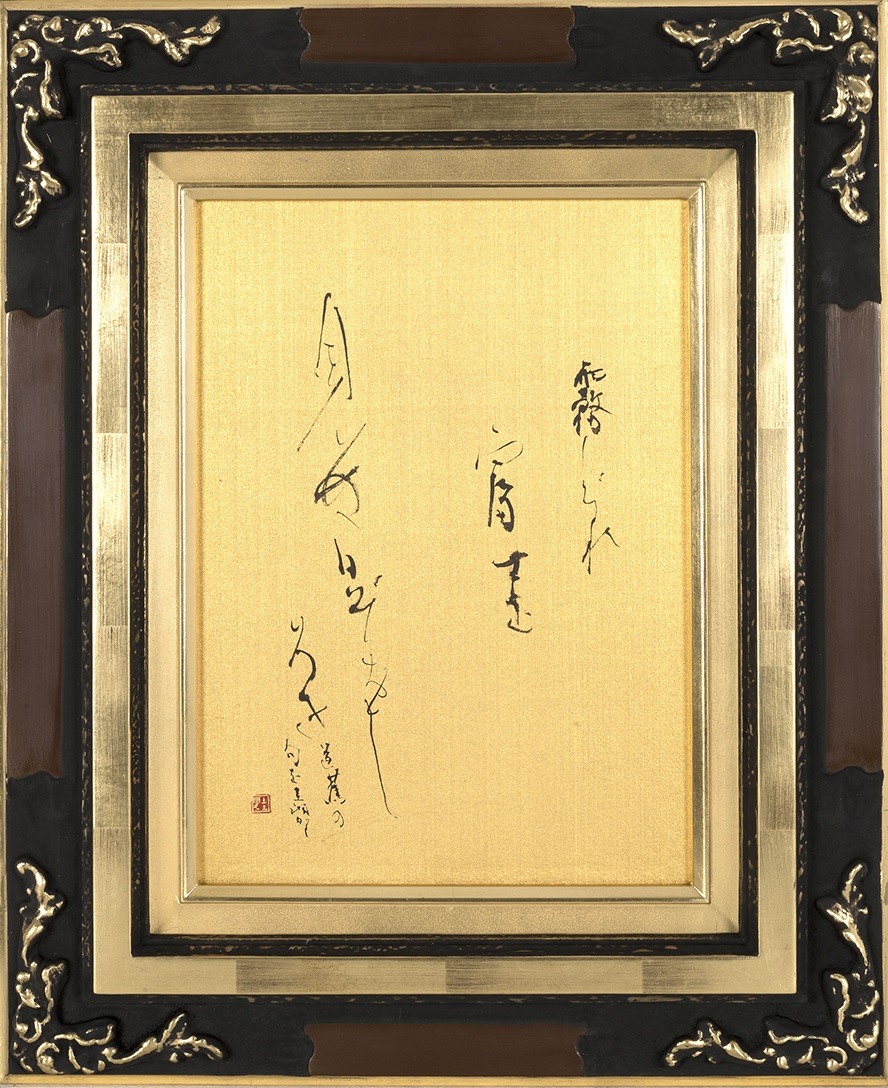 霧しぐれ
富士を
見ぬ日ぞおもし
ろき
芭蕉の
句を